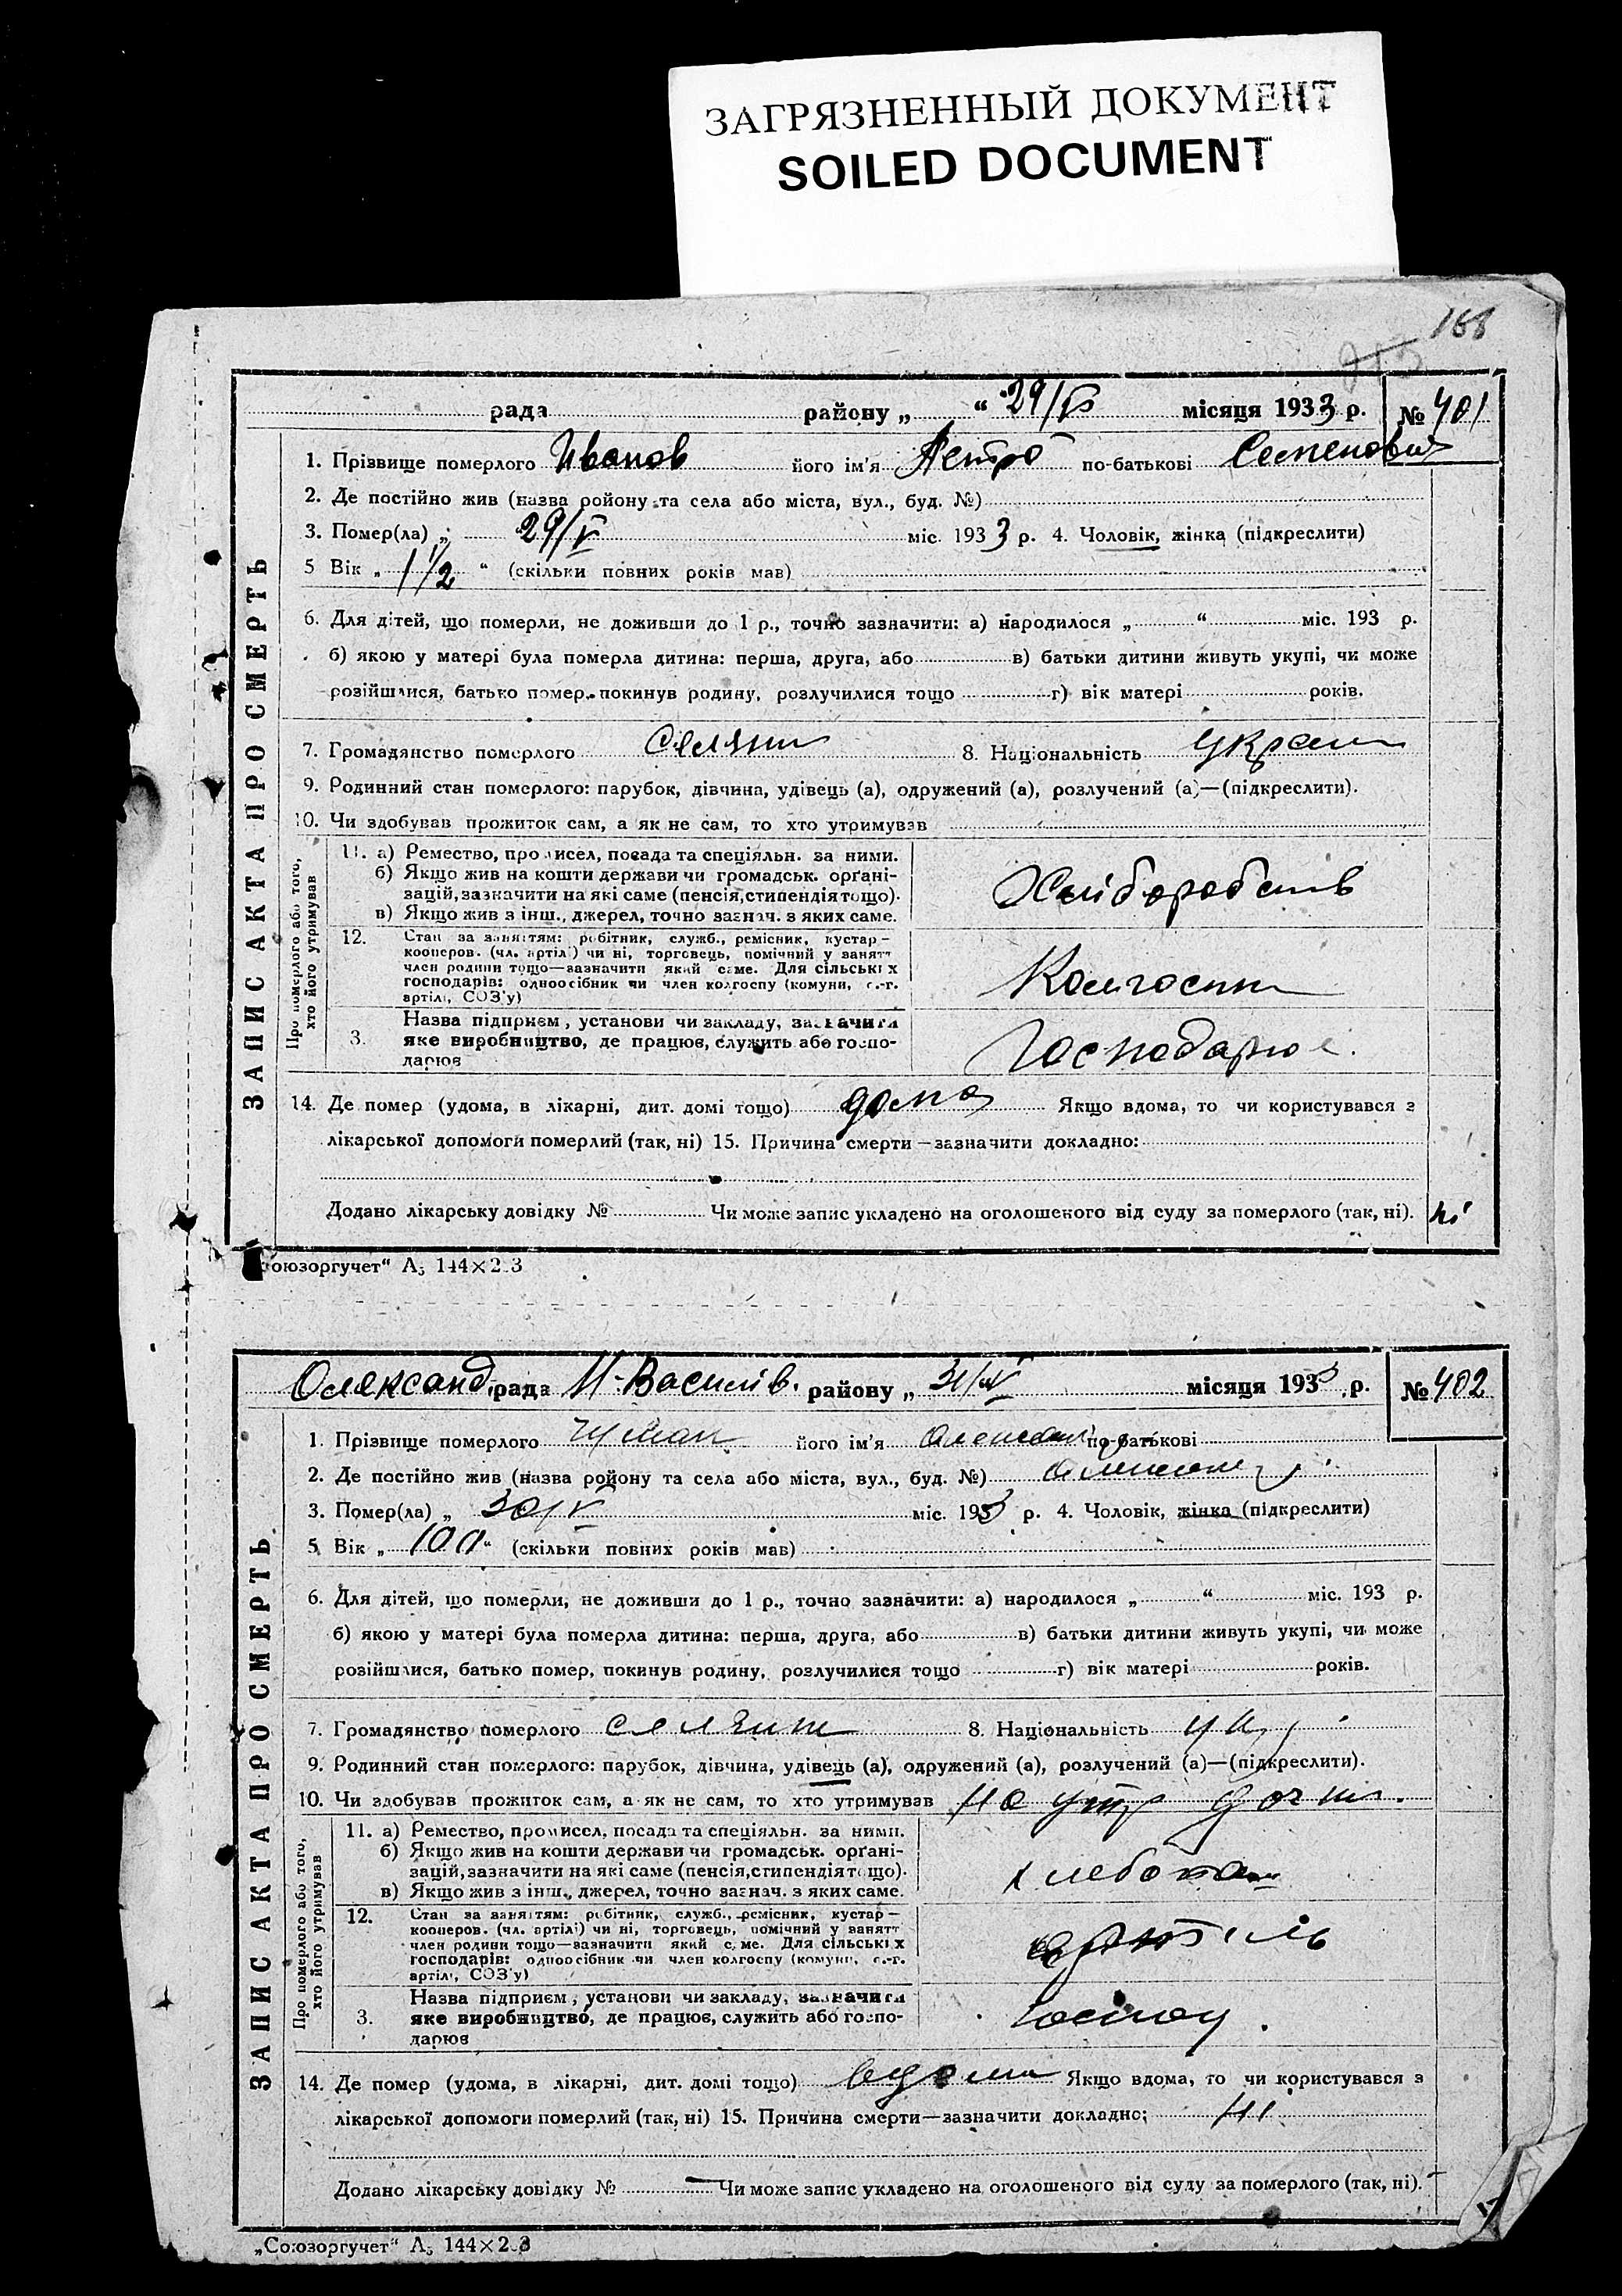 ЗАГРЯЗНЕННЫЙ ДОКУМЕНТ
SOILED DOCUMENT
168
ЗАПИС АКТА ПРО СМЕРТЬ
рада району „ “ 29/V місяця 1933 р. № 401
1. Прізвище померлого Иванов його ім'я Петро по-батькові Семенович
2. Де постійно жив (назва району та села або міста, вул., буд. №)
3. Помер(ла) „ 29/V міс. 1933 р. 4. Чоловік, жінка (підкреслити)
5 Вік „ 1 1/2 “ (скільки повних років мав)
6. Для дітей, що померли, не доживши до 1 р., точно зазначити: а) народилося „ “ міс. 193 р.
б) якою у матері була померла дитина: перша, друга, або в) батьки дитини живуть укупі, чи може
розійшлися, батько помер, покинув родину, розлучилися тощо г) вік матері років.
7. Громадянство померлого селянин 8. Національність Украин
9. Родинний стан померлого: парубок, дівчина, удівець (а), одружений (а), розлучений (а)—(підкреслити).
10. Чи здобував прожиток сам, а як не сам, то хто утримував
Про померлого або того, хто його утримував
11. а) Ремество, промисел, посада та спеціяльн. за ними.
б) Якщо жив на кошти держави чи громадськ. орґані-
зацій, зазначити на які саме (пенсія, стипендія тощо).
в) Якщо жив з інш., джерел, точно зазнач. з яких саме.
Хліборобств
12. Стан за заняттям: робітник, служб., ремісник, кустар—
кооперов. (чл. артілі) чи ні, торговець, помічний у занятт
член родини тощо—зазначити який саме. Для сільських
господарів: одноосібник чи член колгоспу (комуни, с.-г.
артілі, СОЗ'у)
Колгоспник
3. Назва підприєм, установи чи закладу, зазначити
яке виробництво, де працює, служить або госпо-
дарює
Господарює.
14. Де помер (удома, в лікарні, дит. домі тощо) дома Якщо вдома, то чи користувався з
лікарської допомоги померлий (так, ні) 15. Причина смерти—зазначити докладно:
Додано лікарську довідку № Чи може запис укладено на оголошеного від суду за померлого (так, ні). ні
„Союзоргучет“ А5 144×2 3
ЗАПИС АКТА ПРО СМЕРТЬ
Олександ. рада Н-Василів. району „ 31/V місяця 1933 р. № 402
1. Прізвище померлого Чуман його ім'я по-батькові
2. Де постійно жив (назва району та села або міста, вул., буд. №)
3. Помер(ла) „ 30/V міс. 1933 р. 4. Чоловік, жінка (підкреслити)
5 Вік „ “ (скільки повних років мав)
6. Для дітей, що померли, не доживши до 1 р., точно зазначити: а) народилося „ “ міс. 193 р.
б) якою у матері була померла дитина: перша, друга, або в) батьки дитини живуть укупі, чи може
розійшлися, батько помер, покинув родину, розлучилися тощо г) вік матері років.
7. Громадянство померлого селянин 8. Національність Ук
9. Родинний стан померлого: парубок, дівчина, удівець (а), одружений (а), розлучений (а)—(підкреслити).
10. Чи здобував прожиток сам, а як не сам, то хто утримував на утр дочки.
Про померлого або того, хто його утримував
11. а) Ремество, промисел, посада та спеціяльн. за ними.
б) Якщо жив на кошти держави чи громадськ. орґані-
зацій, зазначити на які саме (пенсія, стипендія тощо).
в) Якщо жив з інш., джерел, точно зазнач. з яких саме.
12. Стан за заняттям: робітник, служб., ремісник, кустар—
кооперов. (чл. артілі) чи ні, торговець, помічний у занятт
член родини тощо—зазначити який саме. Для сільських
господарів: одноосібник чи член колгоспу (комуни, с.-г.
артілі, СОЗ'у)
артіль
3. Назва підприєм, установи чи закладу, зазначити
яке виробництво, де працює, служить або госпо-
дарює
14. Де помер (удома, в лікарні, дит. домі тощо) вдома Якщо вдома, то чи користувався з
лікарської допомоги померлий (так, ні) 15. Причина смерти—зазначити докладно: Ні.
Додано лікарську довідку № — Чи може запис укладено на оголошеного від суду за померлого (так, ні).
„Союзоргучет“ А5 144×2 3